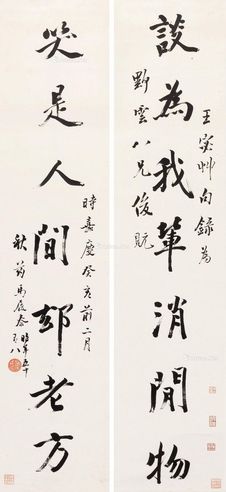 談為我輩消閒物
王宓艸句錄為
野雲八兄俊
咲是人間却老方
時嘉慶癸亥前二月
秋药馬履泰時年五十八